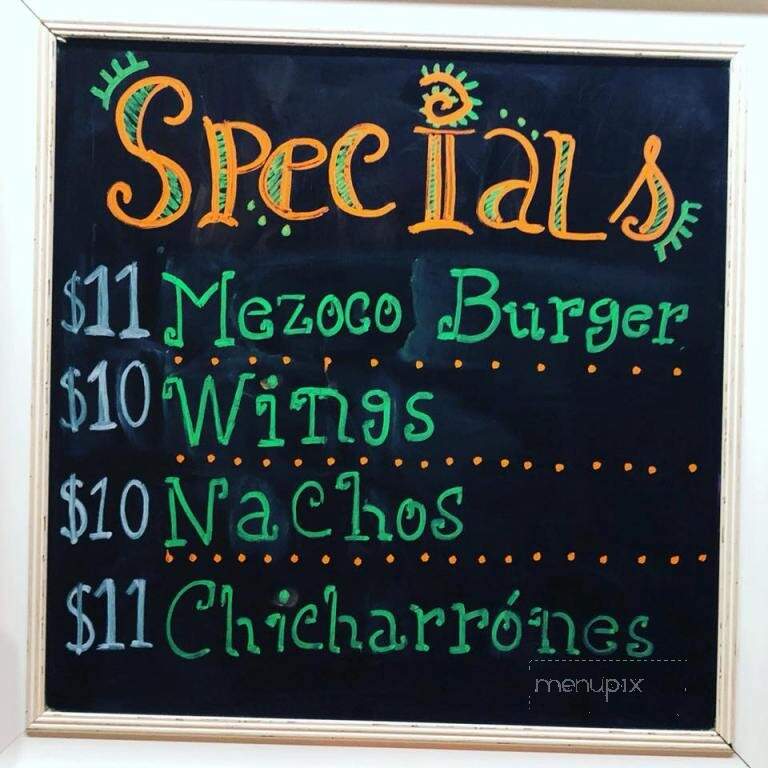 Specials
$11 Mezoco Burger
$10 Wings
$10 Nachos
$11 Chicharrónes
menupix